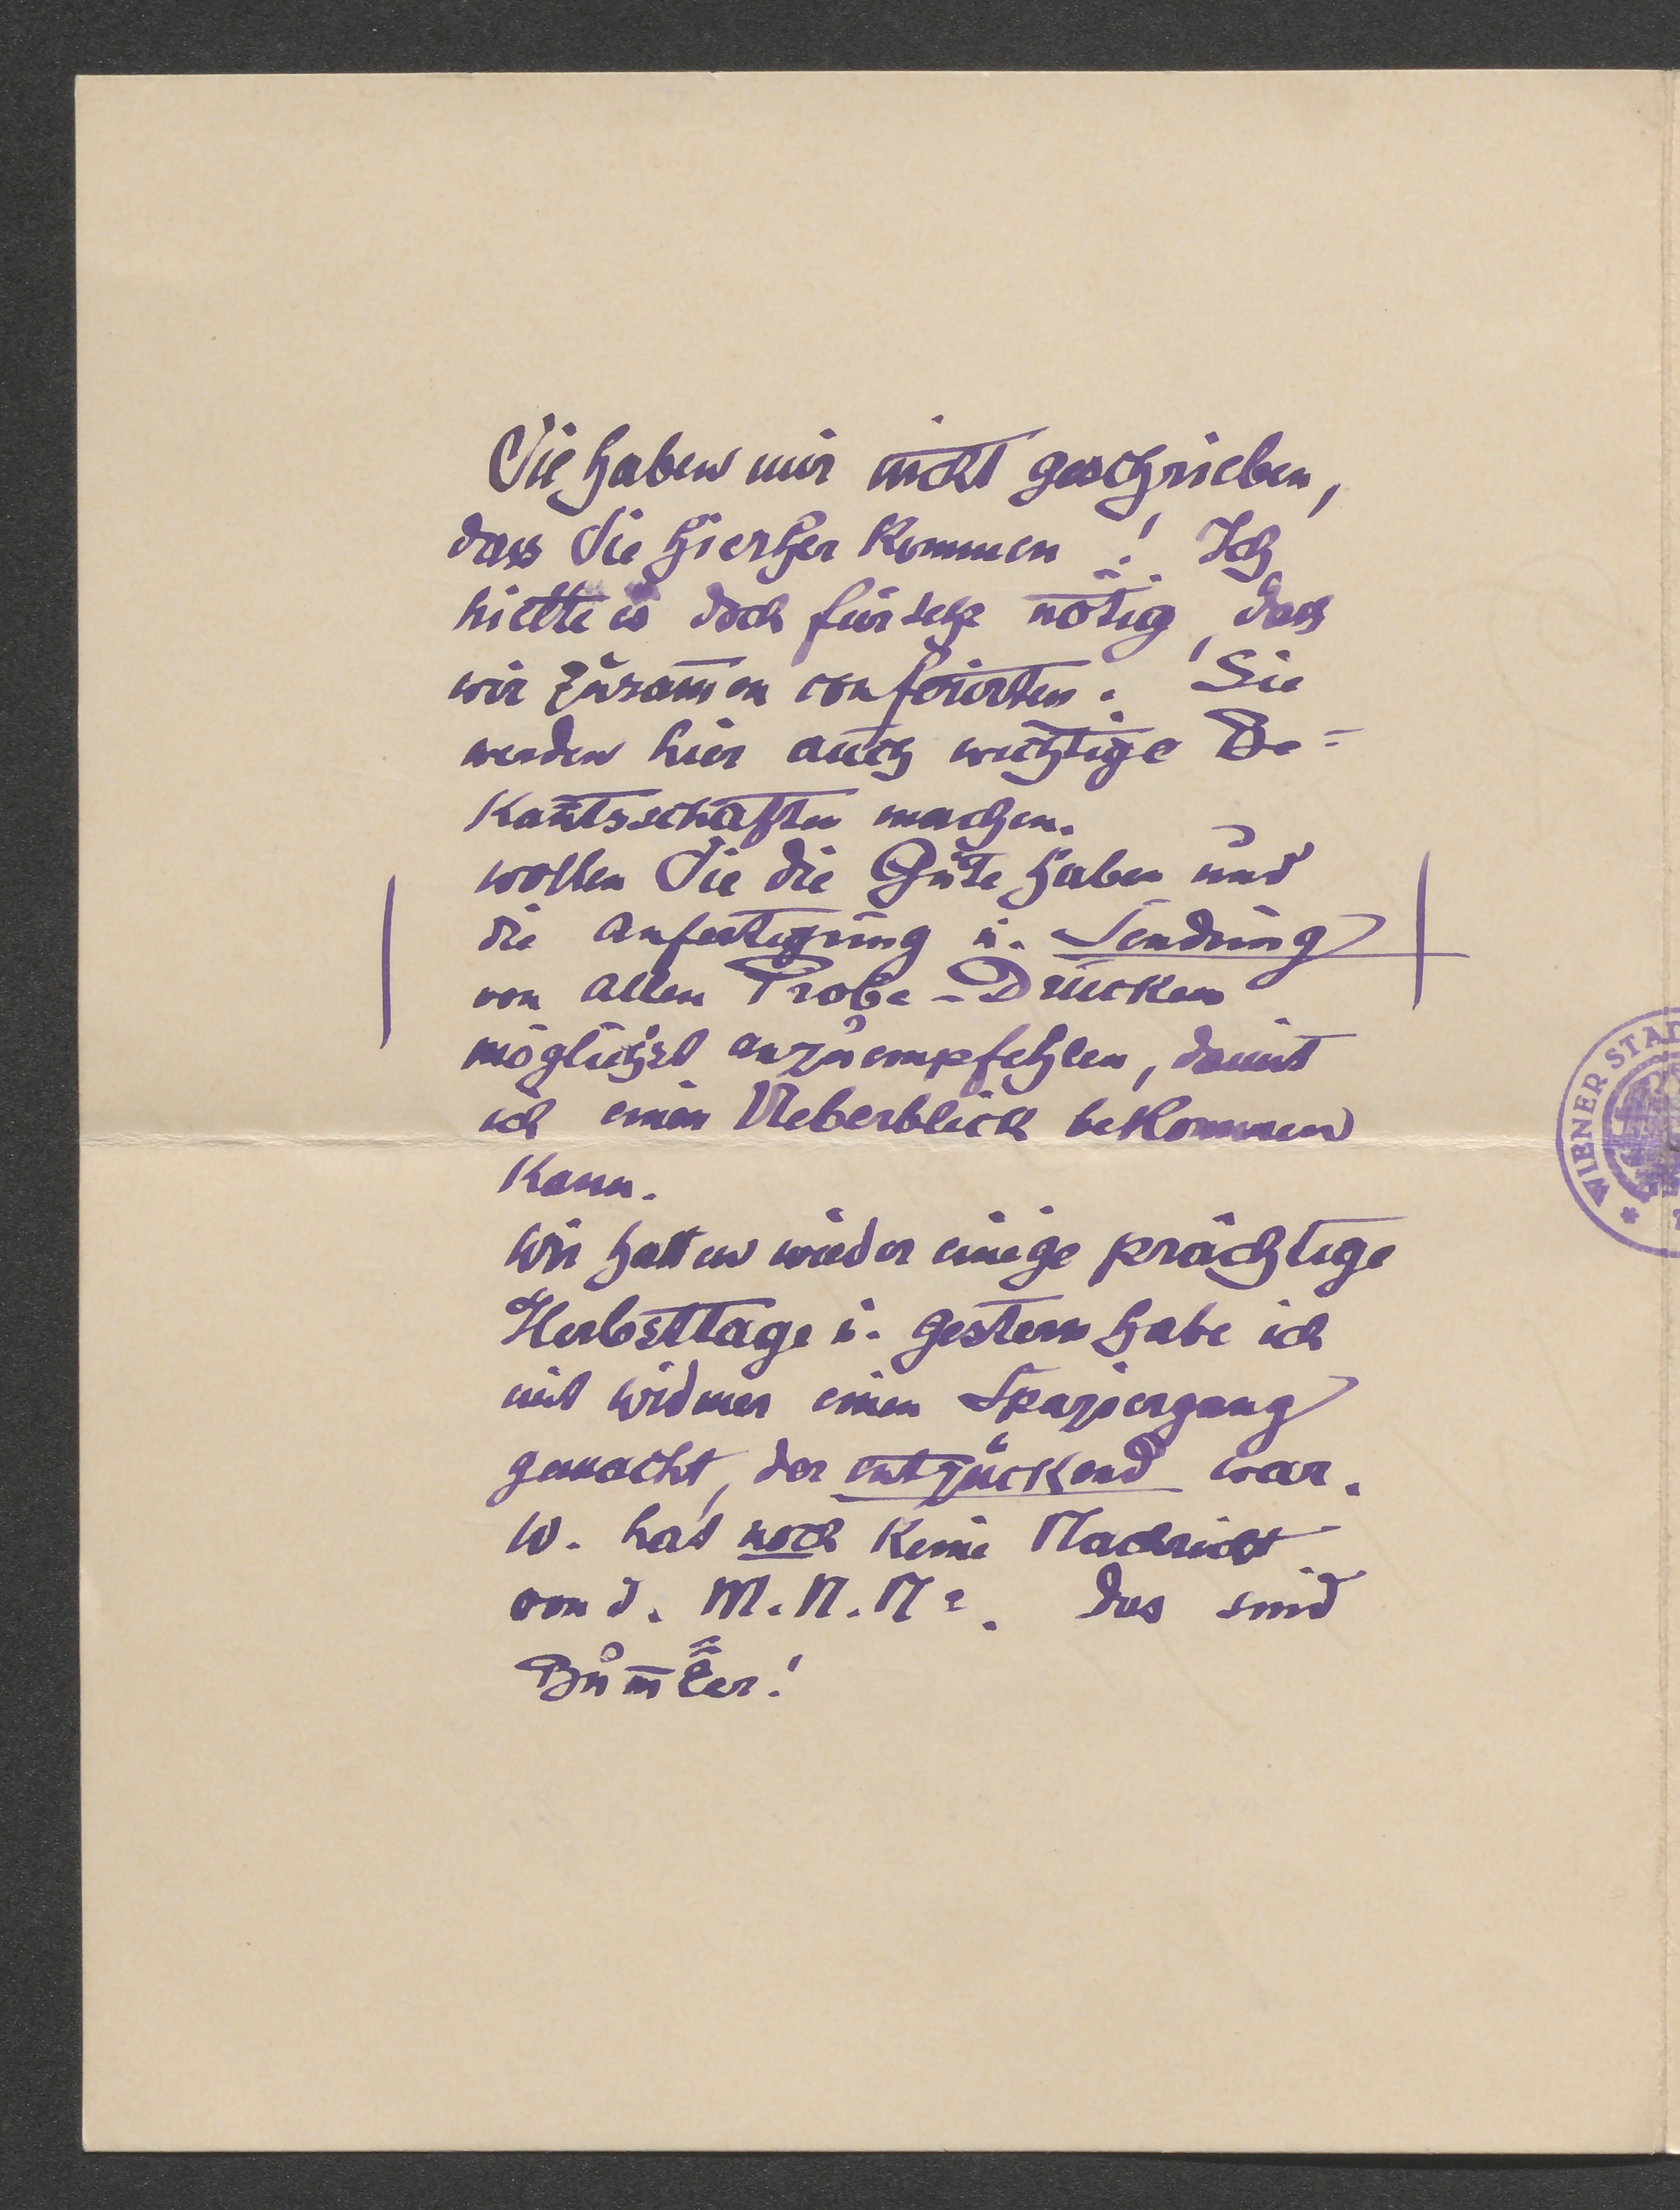 Sie haben mir nicht geschrieben,
dass Sie hierher kommen! Ich
hielte es doch für sehr nötig, dass
wir zusam̅en conferirten. Sie
werden hier auch wichtige Be=
kan̅tsschaften machen.
wollen Sie die Güte haben und
die Anfertigung u. Sendung
von allen Probe-Drucken
möglichst anzuempfehlen, damit
ich einen Ueberblick bekommen
kann.
Wir hatten wieder einige prächtige
Herbsttage u. gestern habe ich
mit Widmer einen Spaziergang
gemacht, der entzückend war.
W. hat noch keine Nachricht
von d. M.N.N. Das sind
Bum̅ler!
WIENER STAD